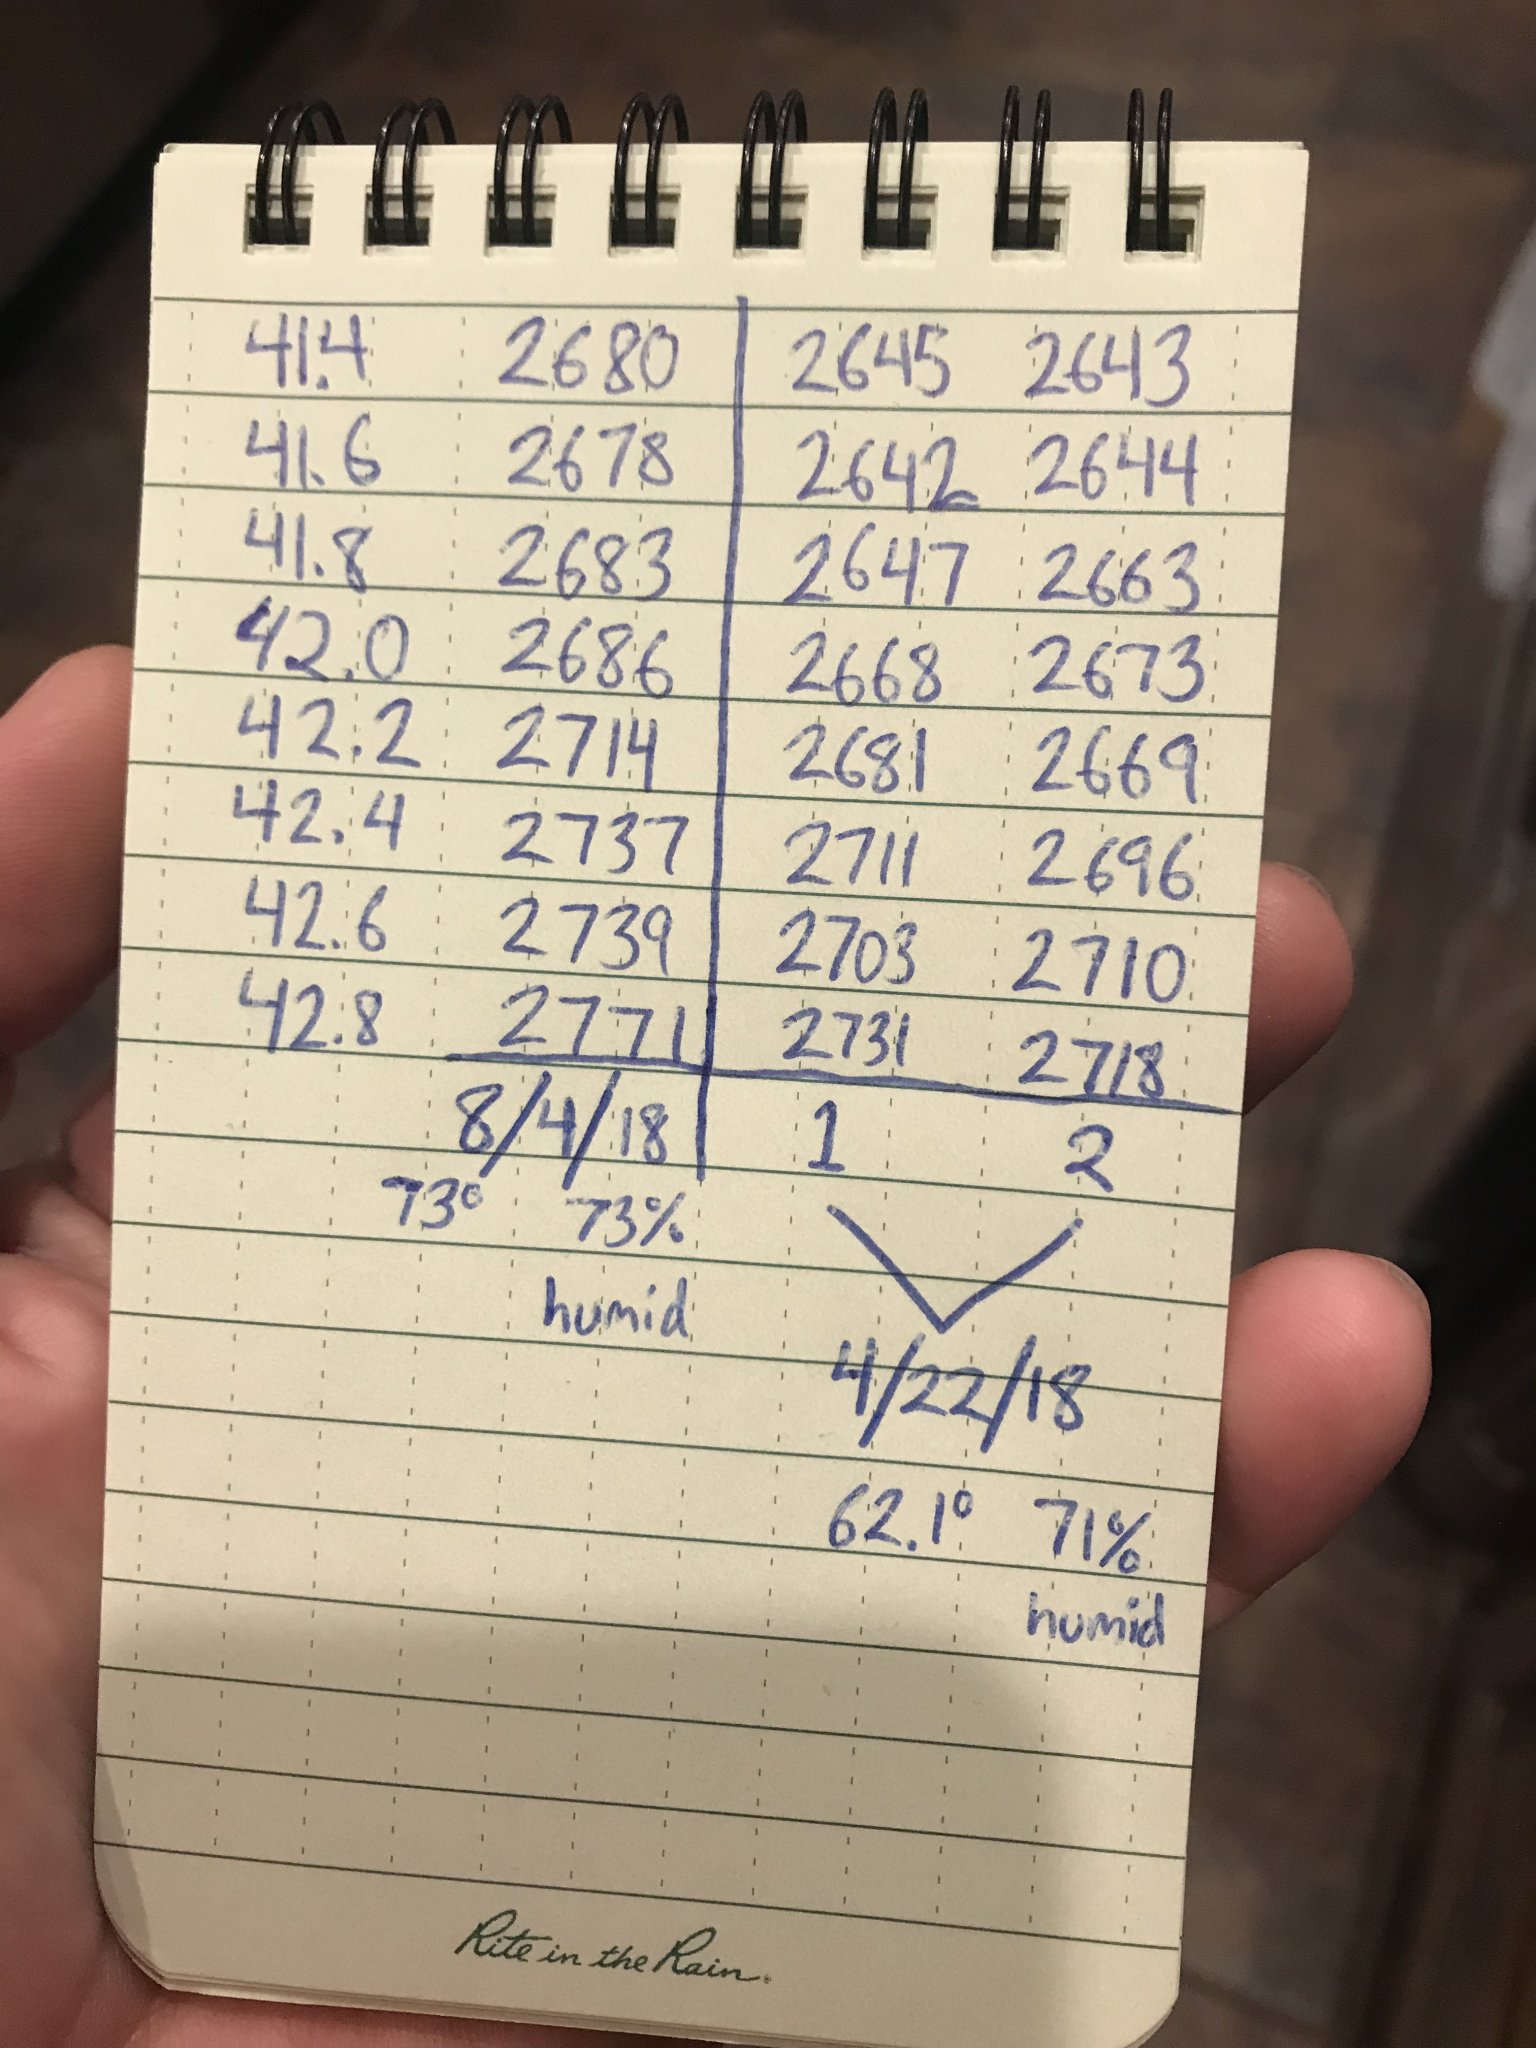 41.4 2680 2645 2643
41.6 2678 2642 2644
41.8 2683 2647 2663
42.0 2686 2668 2673
42.2 2714 2681 2669
42.4 2737 2711 2696
42.6 2739 2703 2710
42.8 2771 2731 2718
8/4/18 1 2
73° 73%
humid
4/22/18
62.1° 71%
humid
Rite in the Rain.